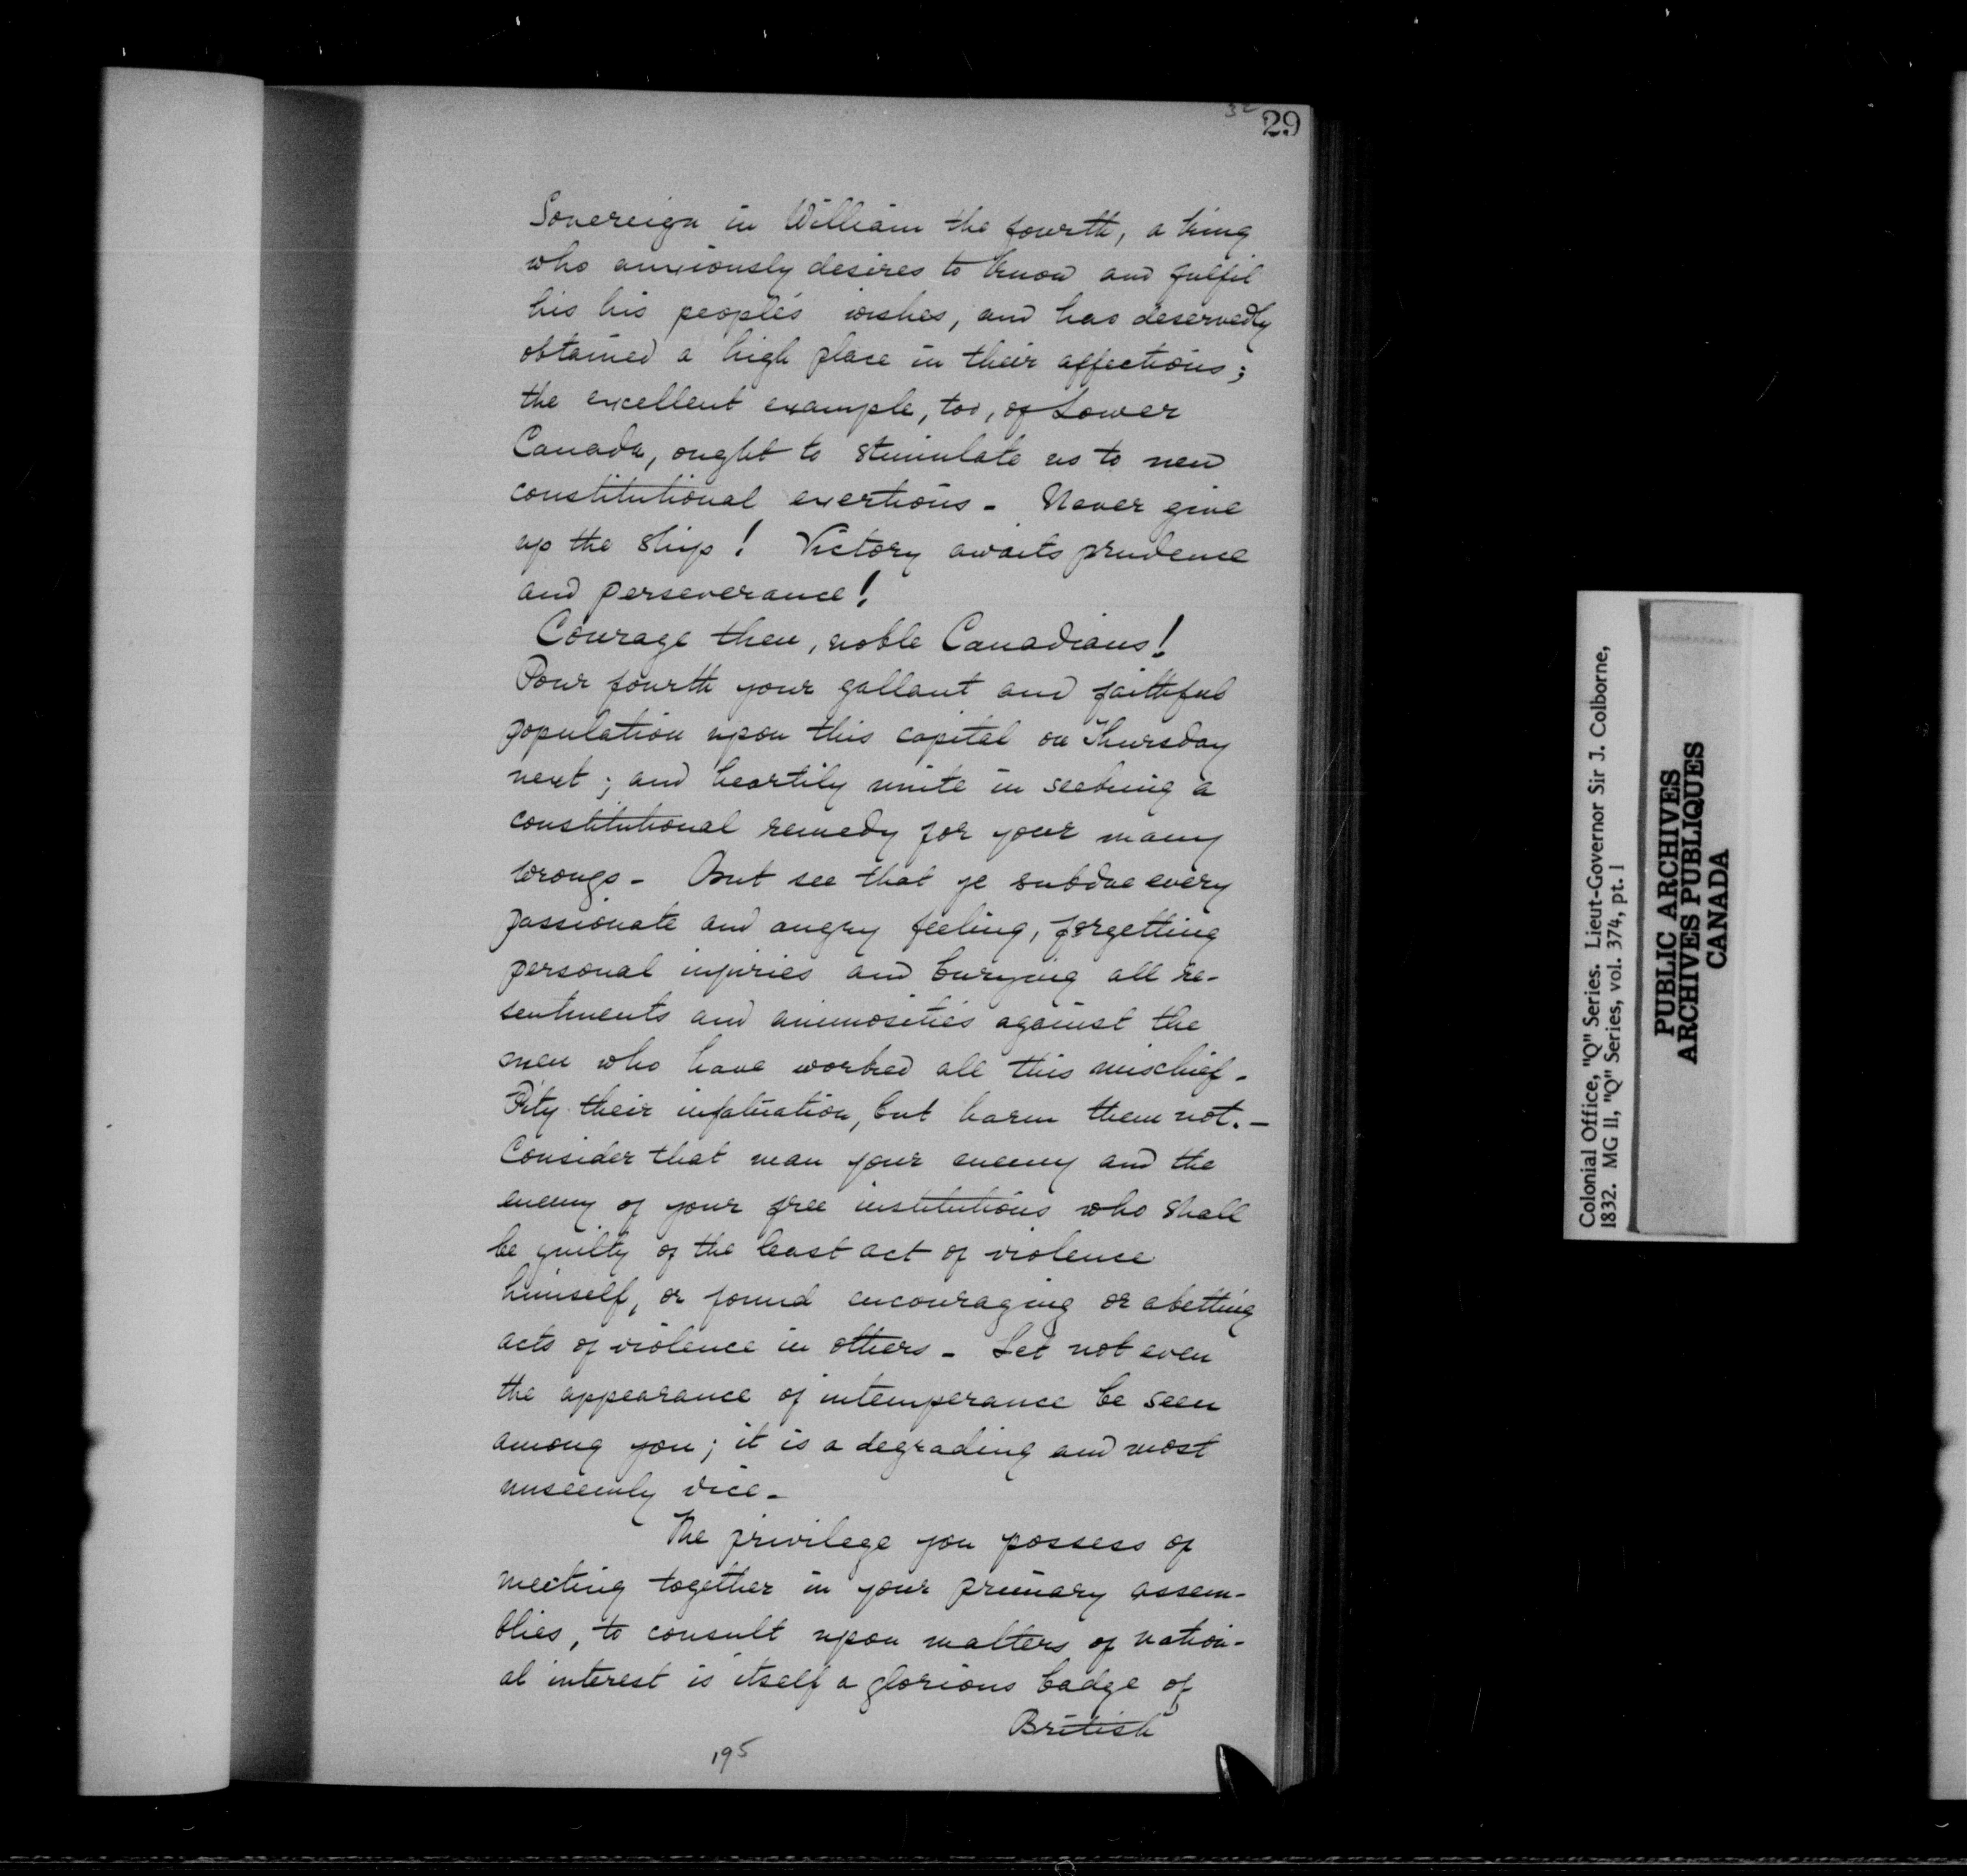 32
29
Sovereign in William the fourth, a king
who anxiously desires to know and fulfil
his his people's wishes, and has deservedly
obtained a high place in their affections;
the excellent example, too, of Lower
Canada, ought to stimulate us to new
constitutional exertions - Never give
up the ship! Victory awaits prudence
and perseverance!
Courage then, noble Canadians!
Pour fourth your gallant and faithful
population upon this capital on Thursday
next; and heartily unite in seeking a
constitutional remedy for your many
wrongs - But see that ye subdue every
passionate and angry feeling, forgetting
personal injuries and burying all re-
sentments and animosities against the
men who have worked all this mischief -
Pity their infatuation, but harm them not. -
Consider that man your enemy and the
enemy of your free institutions who shall
be guilty of the least act of violence
himself, or found encouraging or abetting
acts of violence in others - Let not even
the appearance of intemperance be seen
among you; it is a degrading and most
unseemly vice -
The privilege you possess of
meeting together in your primary assem-
blies, to consult upon matters of nation-
al interest is itself a glorious badge of
British
195
Colonial Office, "Q" Series. Lieut-Governor Sir J. Colborne,
1832. MG 11, "Q" Series, vol. 374, pt. 1
PUBLIC ARCHIVES
ARCHIVES PUBLIQUES
CANADA